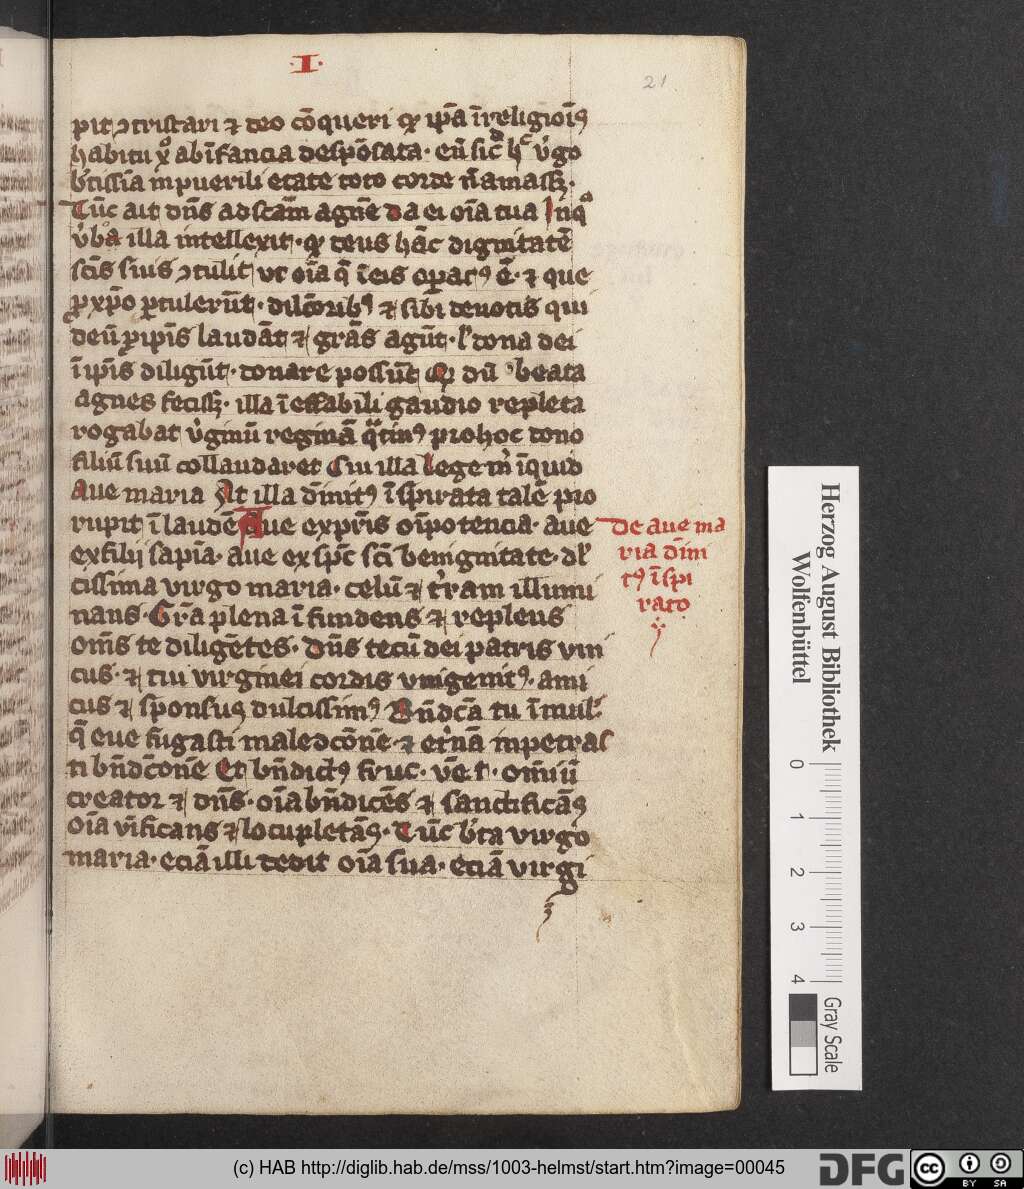 ·I·
21
pit ꝯtristari ⁊ deo cōqueri ꝙ ip̄a ī religiōis
habitu xp̄o ab īfancia despōsata· eū sic͛ h᷒ v͛go
b͛tissīa in puerili etate toto corde n̄ amassꝫ·
Tūc ait dn̄s ad scām agnē da ei oīa tua In qͦ
v͛ba illa intellexit· ꝙ deus hāc dignitatē
scīs suis ꝯtulit vt oīa q̄ ī eis opatꝰ ē· ⁊ que
ꝓ xp̄o ꝑtulerūt· dilc̄oribꝰ ⁊ sibi deuotis qui
deū ꝓ ip̄is laudāt ⁊ grās agūt· l͛ dona dei
ī ip̄is diligūt· donare possūt Qd̓ dū beata
agnes fecissꝫ· illa ī effabili gaudio repleta
rogabat v͛ginū reginā qᷓtinꝰ pro hoc dono
filiū suū collaudaret Cui illa lege m͛ īquid
Aue maria At illa diuītꝰ īspirata talē pro
rupit ī laudē Aue expr̄is oīpotencia· aue
ex filij sapīa· aue ex spc̄ sc̄i benignitate· dl᷒
cissima virgo maria· celū ⁊ t͛ram illumi
nans· Grā plena ī fundens ⁊ replens
om̄s te diligētes· dn̄s tecū dei patris vni
cus· ⁊ tui virginei cordis vnigenitꝰ· ami
cus ⁊ sponsus dulcissimꝰ Bn̄dcā tu ī mul͛·
q̄ eue fugasti maledcōnē· ⁊ et͛nā inpetras
ti bn̄dcōnē Et bn̄dictꝰ fruc· vē t· omīū
creator ⁊ dn̄s· oīa bn̄dicēs ⁊ sanctificās
oīa viificans ⁊ locupletās· Tūc b͛ta virgo
maria· eciā illi dedit oīa sua· eciā virgi
De aue ma
ria diui
tꝰ īspi
rato
Herzog August Bibliothek
Wolfenbüttel
0 1 2 3 4
Gray Scale
(c) HAB http://diglib.hab.de/mss/1003-helmst/start.htm?image=00045
DFG
cc BY SA